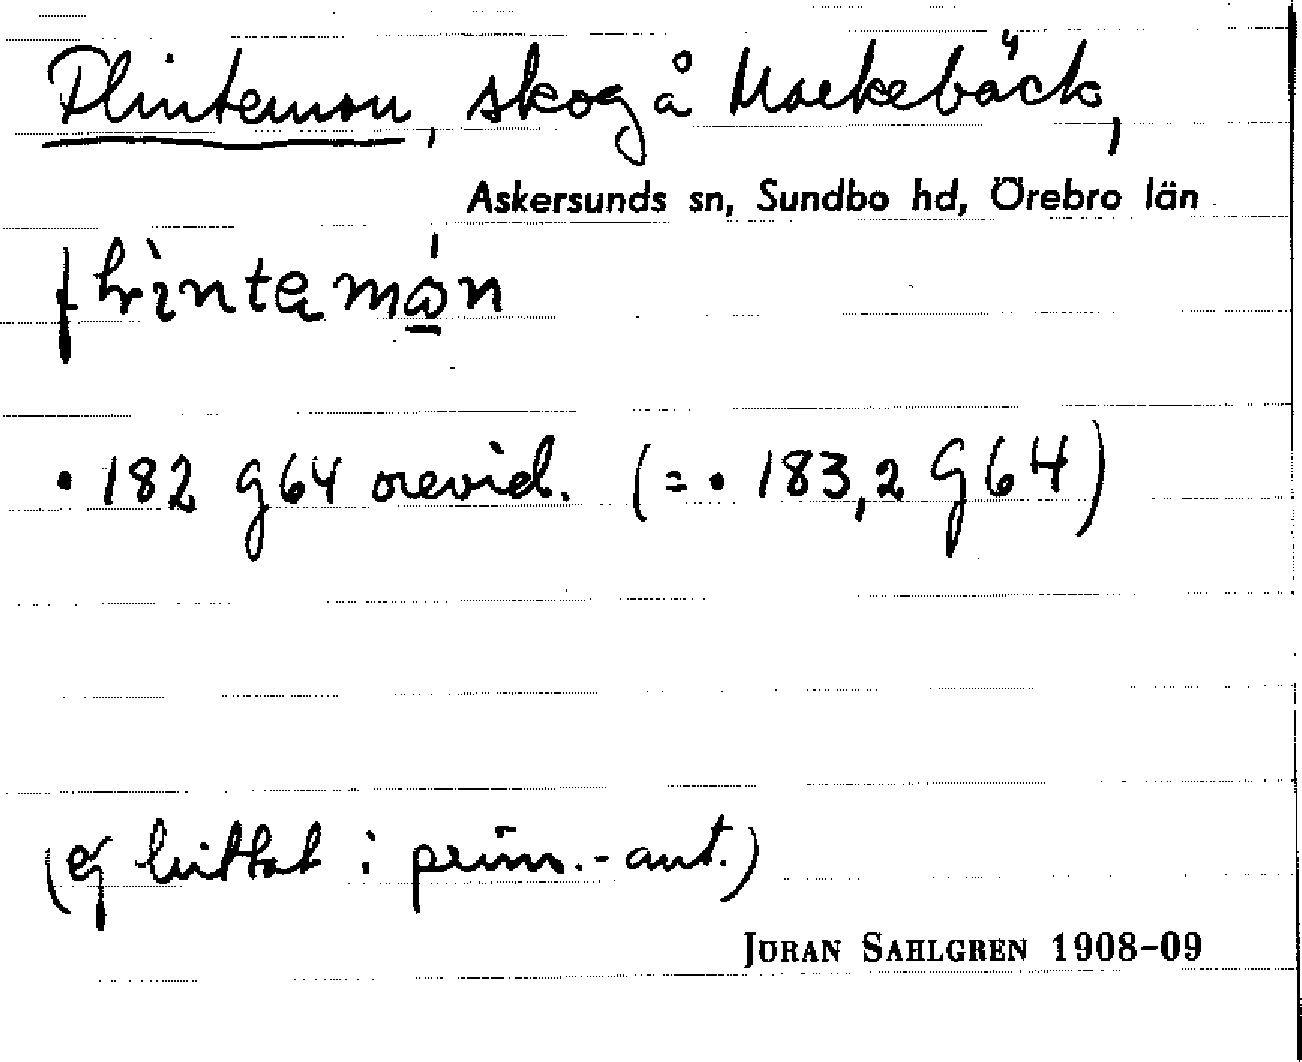 Flintemon, skog å Markebäck,
Askersunds sn, Sundbo hd, Örebro län
• 182 g64 orevid. (= • 183,2 G64)
(ej hittat i prim.-ant.)
JÖRAN SAHLGREN 1908-09